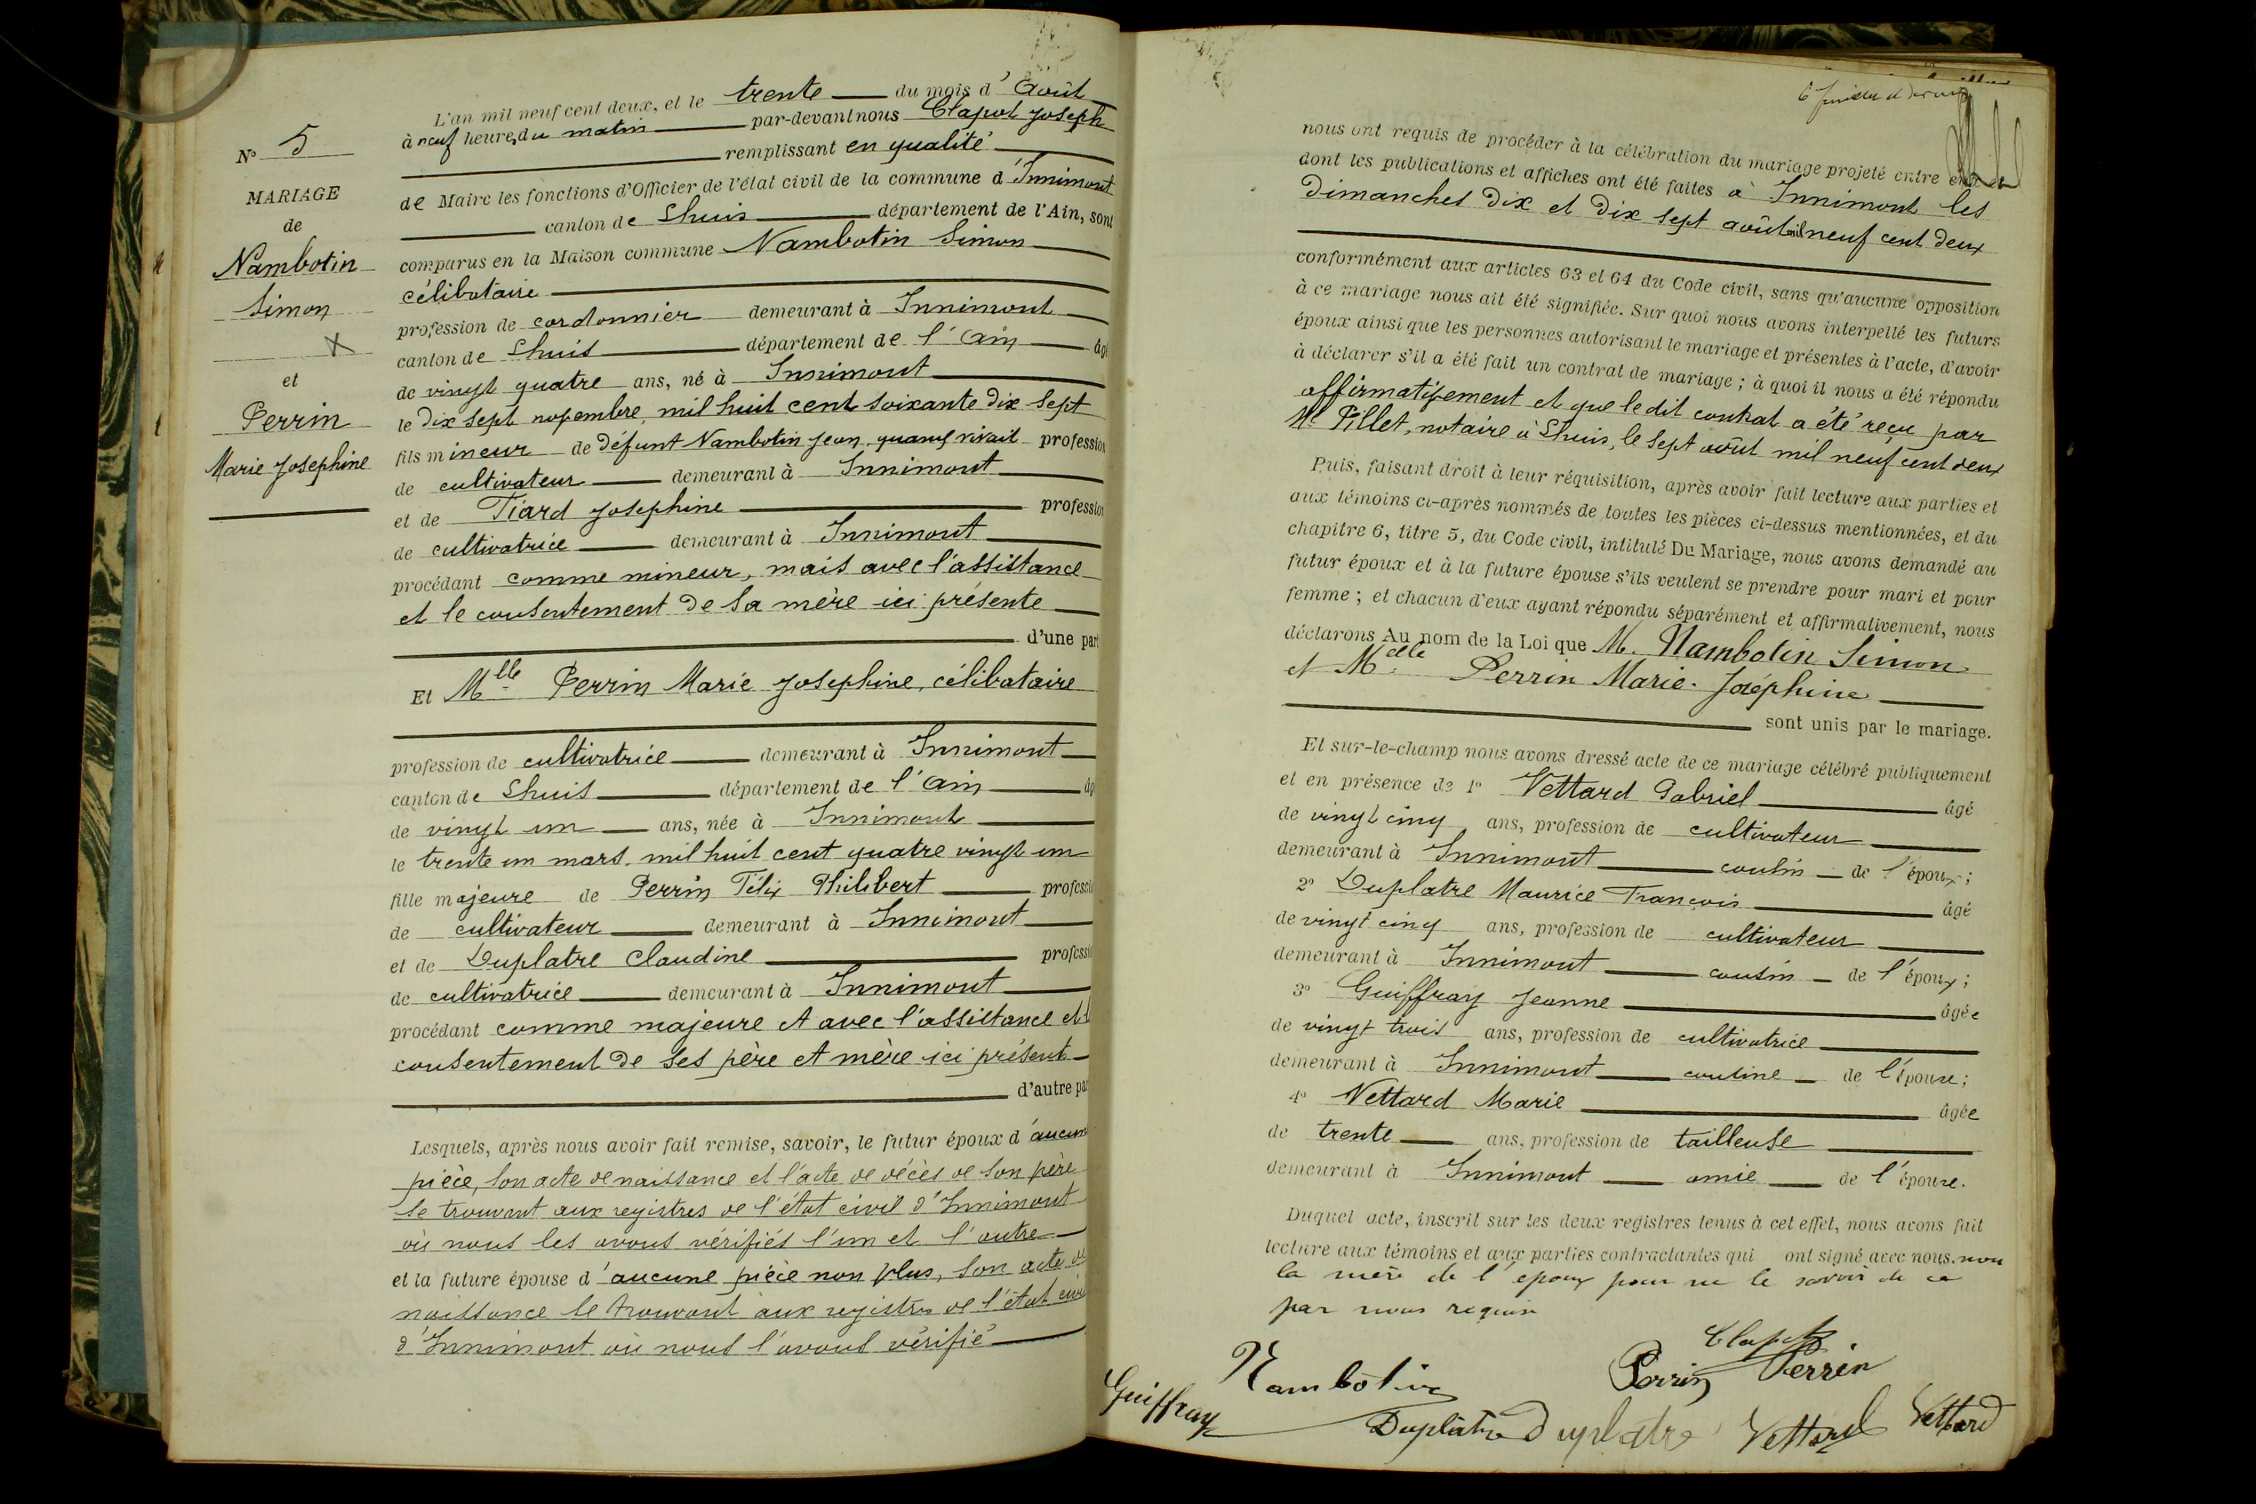 N° 5
MARIAGE
de
Nambotin
Simon
et
Perrin
Marie Josephine
L'an mil neuf cent deux, et le trente du mois d'Août
à neuf heures du matin par-devant nous Clapot Joseph
remplissant en qualité
de Maire les fonctions d'Officier de l'état civil de la commune d'Innimont
canton de Lhuis département de l'Ain, sont
comparus en la Maison commune Nambotin Simon
célibataire
profession de cordonnier demeurant à Innimont
canton de Lhuis département de l'Ain âgé
de vingt quatre ans, né à Innimont
le dix sept novembre mil huit cent soixante dix sept
fils mineur de défunt Nambotin Jean quand vivait profession
de cultivateur demeurant à Innimont
et de Tiard Josephine profession
de cultivatrice demeurant à Innimont
procédant comme mineur, mais avec l'assistance
et le consentement de sa mère ici présente
d'une part
Et Mlle Perrin Marie Josephine, célibataire
profession de cultivatrice demeurant à Innimont
canton de Lhuis département de l'Ain âg
de vingt un ans, née à Innimont
le trente un mars mil huit cent quatre vingt un
fille majeure de Perrin Félix Philibert professio
de cultivateur demeurant à Innimont
et de Duplatre Claudine professio
de cultivatrice demeurant à Innimont
procédant comme majeure et avec l'assistance et l
consentement de ses père et mère ici présent
d'autre par
Lesquels, après nous avoir fait remise, savoir, le futur époux d'aucune
pièce, son acte de naissance et l'acte de décès de son père
se trouvant aux registres de l'état civil d'Innimont
où nous les avons vérifiés l'un et l'autre
et la future épouse d'aucune pièce non plus, son acte de
naissance se trouvant aux registres de l'état civil
d'Innimont où nous l'avons vérifié
nous ont requis de procéder à la célébration du mariage projeté entre eux et
dont les publications et affiches ont été faites à Innimont les
dimanches dix et dix sept août mil neuf cent deux
conformément aux articles 63 et 64 du Code civil, sans qu'aucune opposition
à ce mariage nous ait été signifiée. Sur quoi nous avons interpellé les futurs
époux ainsi que les personnes autorisant le mariage et présentes à l'acte, d'avoir
à déclarer s'il a été fait un contrat de mariage ; à quoi il nous a été répondu
affirmativement et que le dit contrat a été reçu par
Me Pillet, notaire à Lhuis, le sept août mil neuf cent deux
Puis, faisant droit à leur réquisition, après avoir fait lecture aux parties et
aux témoins ci-après nommés de toutes les pièces ci-dessus mentionnées, et du
chapitre 6, titre 5, du Code civil, intitulé Du Mariage, nous avons demandé au
futur époux et à la future épouse s'ils veulent se prendre pour mari et pour
femme ; et chacun d'eux ayant répondu séparément et affirmativement, nous
déclarons Au nom de la Loi que M. Nambotin Simon
et Melle Perrin Marie-Joséphine
sont unis par le mariage.
Et sur-le-champ nous avons dressé acte de ce mariage célébré publiquement
et en présence de 1° Vettard Gabriel âgé
de vingt cinq ans, profession de cultivateur
demeurant à Innimont cousin de l'époux ;
2° Duplatre Maurice François âgé
de vingt cinq ans, profession de cultivateur
demeurant à Innimont cousin de l'époux ;
3° Guiffray Jeanne âgée
de vingt trois ans, profession de cultivatrice
demeurant à Innimont cousine de l'épouse ;
4° Vettard Marie âgée
de trente ans, profession de tailleuse
demeurant à Innimont amie de l'épouse.
Duquel acte, inscrit sur les deux registres tenus à cet effet, nous avons fait
lecture aux témoins et aux parties contractantes qui ont signé avec nous, non
la mère de l'époux pour ne le savoir de ce
par nous requise
Clapot
Nambotin Perrin Perrin
Guiffray Duplâtre Duplatre Vettard Vettard